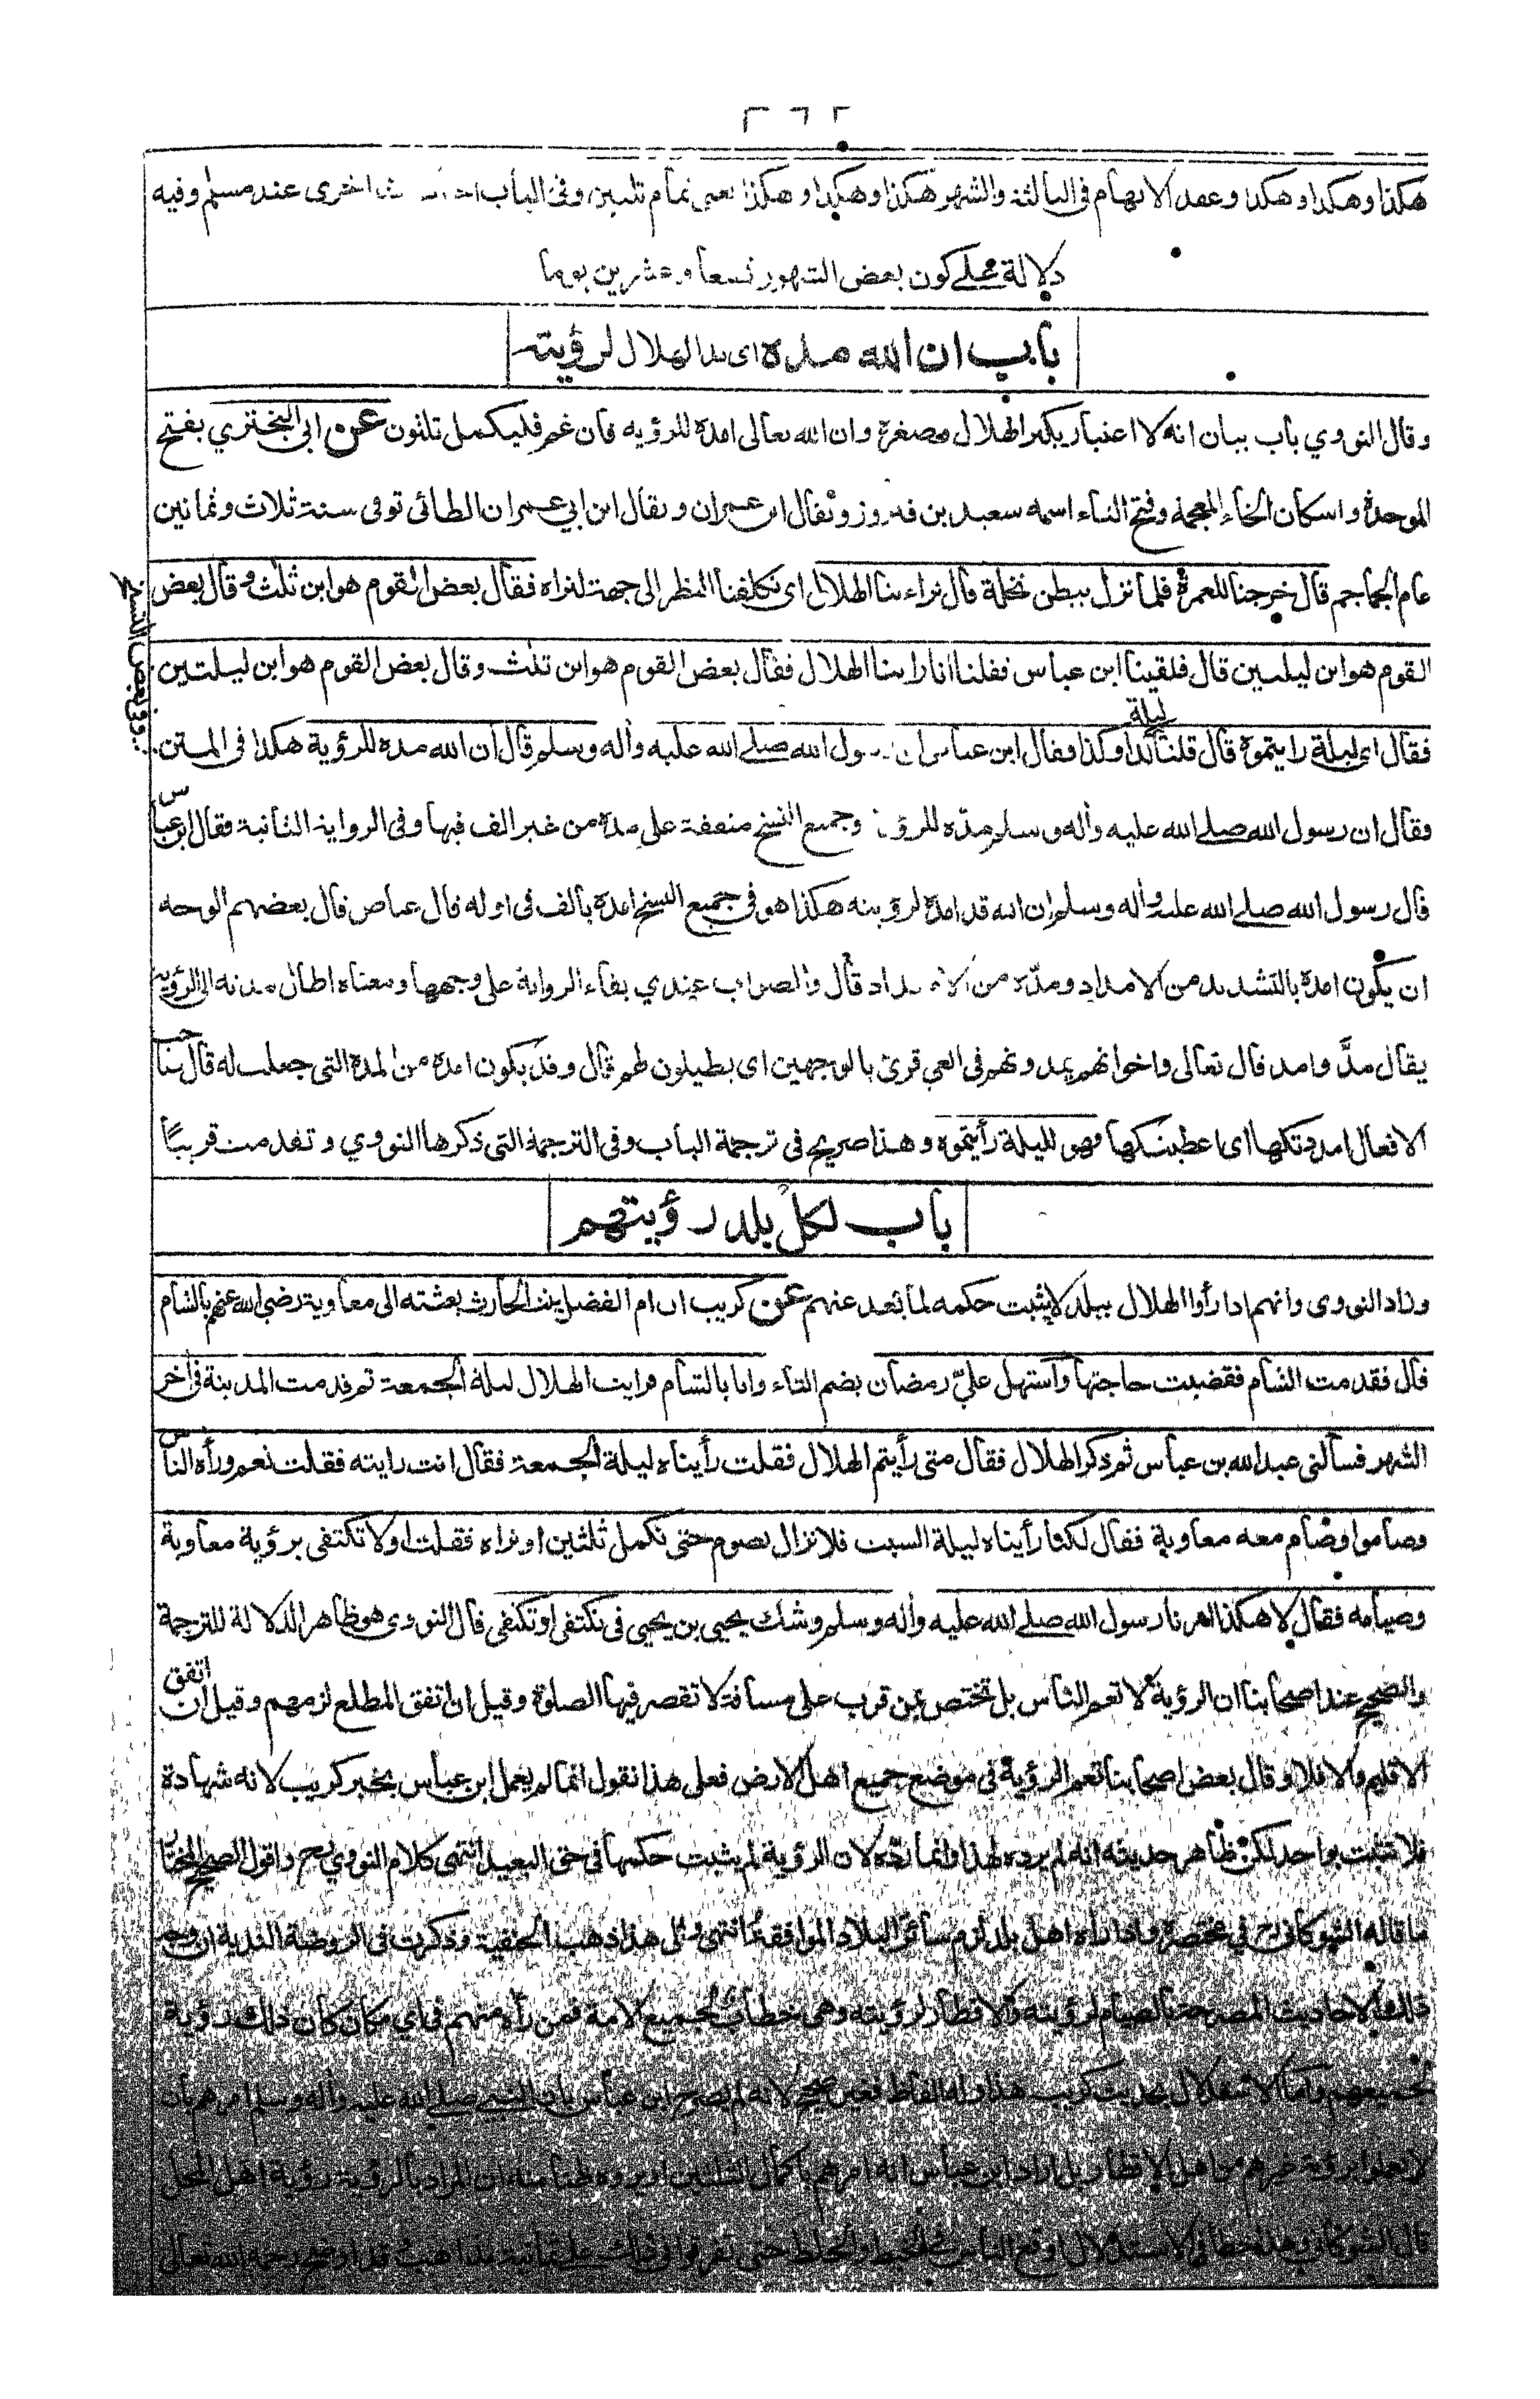 هكذا وهكذا وهكذا وعقد الابهام فى الثالثة والشهر هكذا وهكذا وهكذا يعنى تمام ثلثين وفى الباب اخرى عند مسلم وفيه
دلالة على كون بعض الشهور تسعا وعشرين يوما
باب ان الله مده اى مد الهلال لرؤيته
وقال النووي باب بيان انه لا اعتبار بكبر الهلال وصغره وان الله تعالى امده للرؤيه فان غم فليكمل ثلثون عن ابى البختري بفتح
الموحدة واسكان الخاء المعجمة وفتح التاء اسمه سعيد بن فيروز ويقال ابن عمران ويقال ابن ابي عمران الطائى توفى سنة ثلاث وثمانين
عام الجماجم قال خرجنا للعمرة فلما نزلنا ببطن نخلة قال تراءينا الهلال اى تكلفنا النظر الى جهته لنراه فقال بعض القوم هو ابن ثلث وقال بعض
القوم هو ابن ليلتين قال فلقينا ابن عباس فقلنا انا راينا الهلال فقال بعض القوم هو ابن ثلث وقال بعض القوم هو ابن ليلتين
فقال اى ليلة رايتموه قال قلنا ليلة كذا وكذا فقال ابن عباس ان رسول الله صلى الله عليه واله وسلم قال ان الله مده للرؤية هكذا فى المتن
وفي بعض النسخ
فقال ان رسول الله صلى الله عليه واله وسلم مده للرؤية وجميع النسخ متفقة على مده من غير الف فيها وفى الرواية الثانية فقال ابن عباس
قال رسول الله صلى الله عليه واله وسلم ان الله قد امده لرؤيته هكذا هو فى جميع النسخ امده بالف فى اوله قال عياض قال بعضهم الوجه
ان يكون امده بالتشديد من الامداد ومدّه من الامتداد قال والصواب عندي بقاء الرواية على وجهها ومعناه اطال مدته الى الرؤية
يقال مدَّ وامد قال تعالى واخوانهم يمدونهم فى الغي قرئ بالوجهين اى يطيلون لهم قال وقد يكون امده من المدة التى جعلت له قال صاحب
الافعال امددتكها اى اعطيتكها فهو لليلة رأيتموه وهذا صريح فى ترجمة الباب وفى الترجمة التى ذكرها النووي وتقدمت قريبًا
باب لكل بلد رؤيتهم
وزاد النووى وانهم اذا رأوا الهلال ببلد لا يثبت حكمه لما بعد عنهم عن كريب ان ام الفضل بنت الحارث بعثته الى معاوية رضي الله عنهم بالشام
قال فقدمت الشام فقضيت حاجتها واستهل عليّ رمضان بضم التاء وانا بالشام فرايت الهلال ليلة الجمعة ثم قدمت المدينة فى اخر
الشهر فسألنى عبد الله بن عباس ثم ذكر الهلال فقال متى رأيتم الهلال فقلت رأيناه ليلة الجمعة فقال انت رايته فقلت نعم ورأه الناس
وصاموا وصام معه معاوية فقال لكنا رأيناه ليلة السبت فلا نزال نصوم حتى نكمل ثلثين او نراه فقلت اولا تكتفى برؤية معاوية
وصيامه فقال لا هكذا امرنا رسول الله صلى الله عليه واله وسلم وشك يحيى بن يحيى فى نكتفى او تكتفى قال النووى هو ظاهر الدلالة للترجمة
والصحيح عند اصحابنا ان الرؤية لا تعم الناس بل تختص بمن قرب على مسافة لا تقصر فيها الصلوة وقيل ان اتفق المطلع لزمهم وقيل ان اتفق
الاقليم والا فلا وقال بعض اصحابنا تعم الرؤية فى موضع جميع اهل الارض فعلى هذا نقول انما لم يعمل ابن عباس بخبر كريب لانه شهادة
فلا تثبت بواحد لكن ظاهر حديثه انه لم يرده لهذا وانما رده لان الرؤية لم يثبت حكمها فى حق البعيد انتهى كلام النووي رح واقول الصحيح المختار
ما قاله الشوكاني رح في مختصره واذا راه اهل بلد لزم سائر البلاد الموافقة انتهى والى هذا ذهب الحنفية وذكرت فى الروضة الندية ان وجه
ذلك الاحاديث المصرحة بالصيام لرؤيته والافطار لرؤيته وهى خطاب لجميع الامة فمن رأه منهم فى اي مكان كان ذلك رؤية
لجميعهم واما الاستدلال بحديث كريب هذا وله الفاظ فغير صحيح لانه لم يصرح ابن عباس بان النبى صلى الله عليه واله وسلم امرهم بان
لا يعملوا برؤية غيرهم من اهل الاقطار بل اراد ابن عباس انه امرهم باكمال الثلثين او يروه ظنا منه ان المراد بالرؤية رؤية اهل المحل
قال الشوكانى وهذا خطأ فى الاستدلال اوقع الناس فى الخبط والخلط حتى تفرقوا فى ذلك على ثمانية مذاهب قد اوضح رحمه الله تعالى